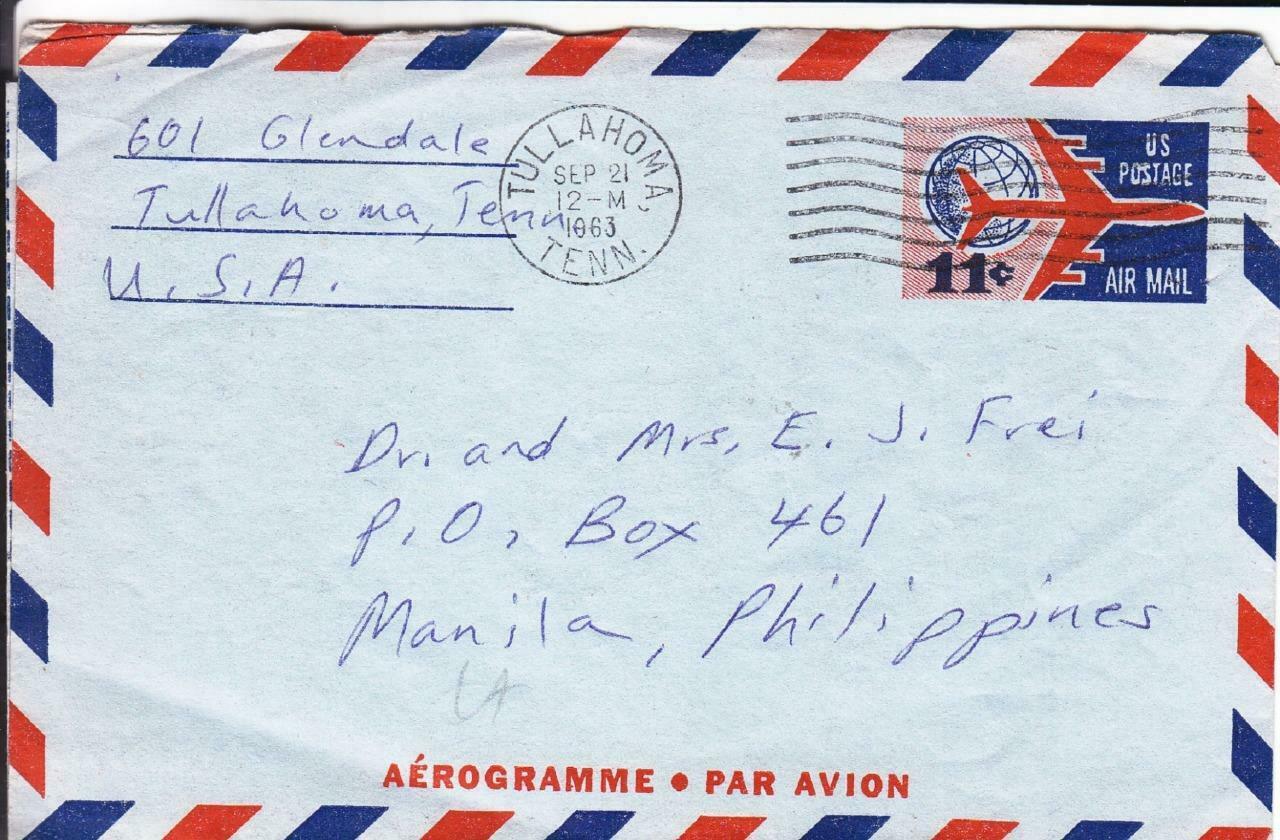 601 Glendale
Tullahoma, Tenn
U.S.A.
TULLAHOMA,
SEP 21
12-M
1963
TENN.
US
POSTAGE
11¢
AIR MAIL
Dr. and Mrs. E. J. Frei
P.O. Box 461
Manila, Philippines
AÉROGRAMME • PAR AVION